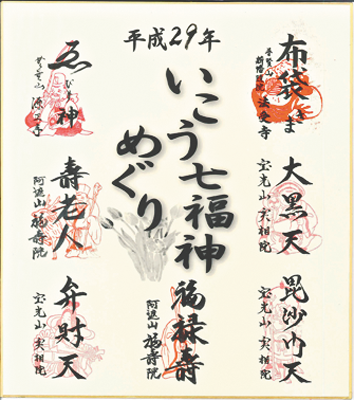 平成29年
いこう七福神
めぐり
布袋さま
大黒天
宝光山 実相院
毘沙門天
宝光山 実相院
福禄寿
阿遮山 福寿院
ゑびす神
源正寺
壽老人
阿遮山 福寿院
弁財天
宝光山 実相院